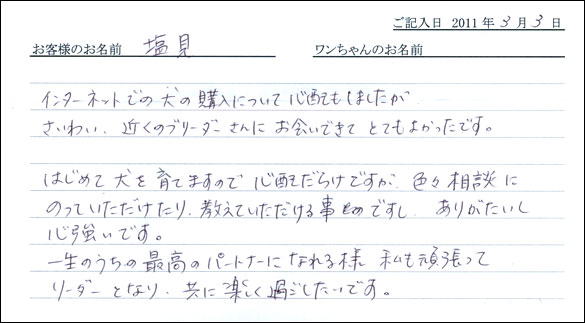 ご記入日 2011年 3月 3日
お客様のお名前 塩見 ワンちゃんのお名前
インターネットでの犬の購入について心配もしましたが
さいわい、近くのブリーダーさんにお会いできてとてもよかったです。
はじめて犬を育てますので心配だらけですが、色々相談に
のっていただけたり、教えていただける事ものですし、ありがたいし
心強いです。
一生のうちの最高のパートナーになれる様 私も頑張って
リーダーとなり、共に楽しく過ごしたいです。